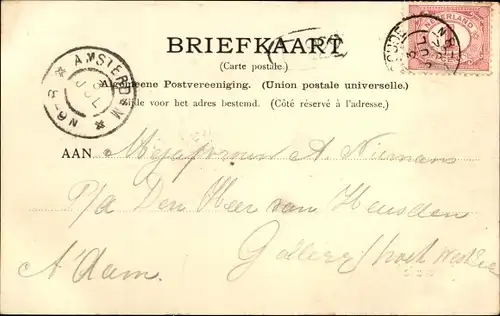 BRIEFKAART
(Carte postale.)
Algemeene Postvereeniging. (Union postale universelle.)
Zijde voor het adres bestemd. (Côté réservé à l'adresse.)
NEDERLAND
AMSTERDAM
JUL
N6-8
AAN Mejufvrouw A. Niemans
P/a Den Heer van Heusden
A'dam.